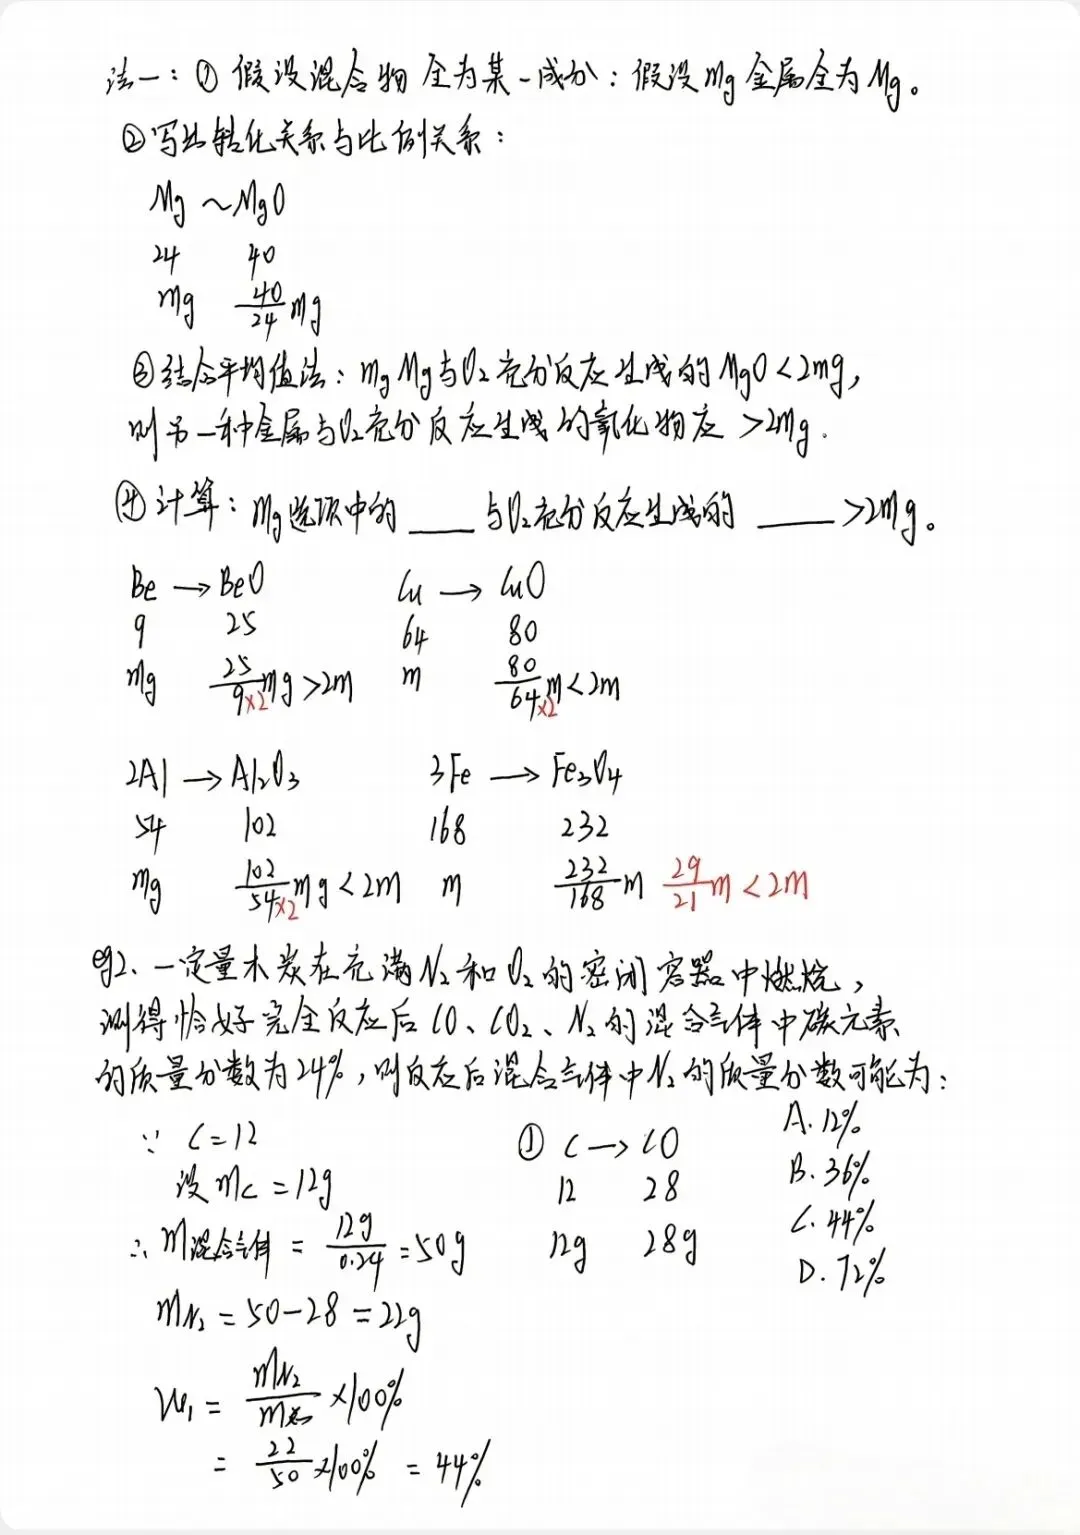 法一：① 假设混合物全为某一成分：假设mg金属全为Mg。
②写出转化关系与比例关系：
Mg ～MgO
24 40
mg 40/24 mg
③结合平均值法：mg Mg与O₂充分反应生成的MgO<2mg，
则另一种金属与O₂充分反应生成的氧化物应>2mg.
④计算：mg选项中的 ____ 与O₂充分反应生成的 ____ >2mg。
Be → BeO Cu → CuO
9 25 64 80
mg 25/9×2 mg >2m m 80/64×2 m<2m
2Al → Al₂O₃ 3Fe → Fe₃O₄
54 102 168 232
mg 102/54×2 mg <2m m 232/168 m 29/21 m <2m
eg2. 一定量木炭在充满N₂和O₂的密闭容器中燃烧，
测得恰好完全反应后CO、CO₂、N₂的混合气体中碳元素
的质量分数为24%，则反应后混合气体中N₂的质量分数可能为：
∵ C=12 ① C → CO A. 12%
设mc =12g 12 28 B. 36%
∴ m混合气体 = 12g/0.24 =50g 12g 28g C. 44%
D. 72%
mN₂ =50-28 =22g
w₁ = mN₂/m总 ×100%
= 22/50 ×100% = 44%